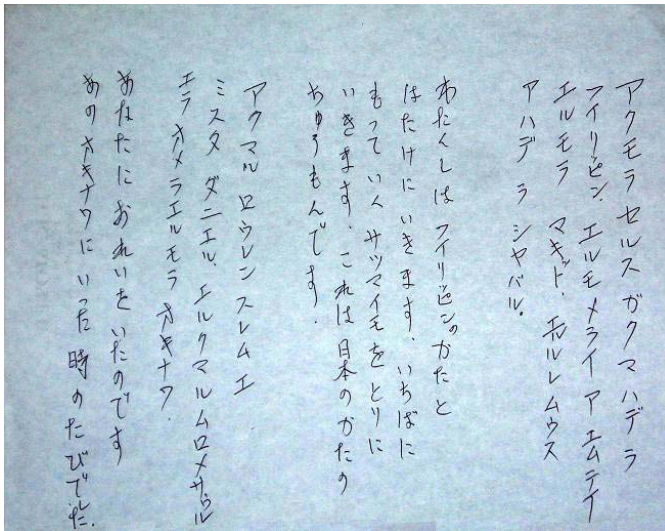 アクモラ セルス ガクマ ハデ ラ
フイリピン. エルモ メライ ア エムテイ
エルモラ マキッド. エルレムウス
アハデ ラ シヤバル.
わたくしは フイリッピンのかたと
はたけにいきます. いちばに
もっていく サツマイモをとりに
いきます. これは 日本のかたの
ちゅうもんです.
アクマル ロウレン スレムエ
ミスタ ダニエル. エルクマルムロメサウル
エラ オメラエルモラ オキナワ.
あなたにおれいをいたのです
あの オキナワにいった 時のたびでした.